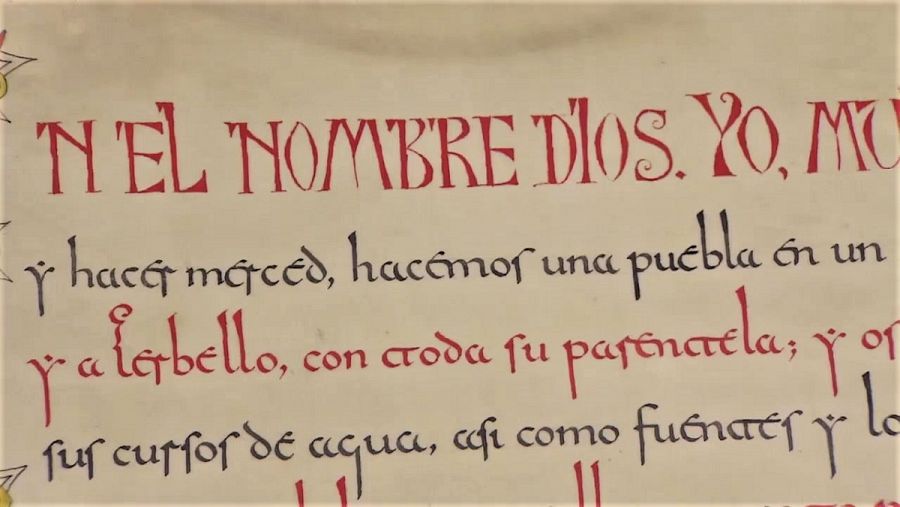 N EL NOMBRE DIOS. YO, MU
y hacer merced, hacemos una puebla en un
y a Cerbello, con toda su parentela; y os
sus cursos de agua, asi como fuentes y lo